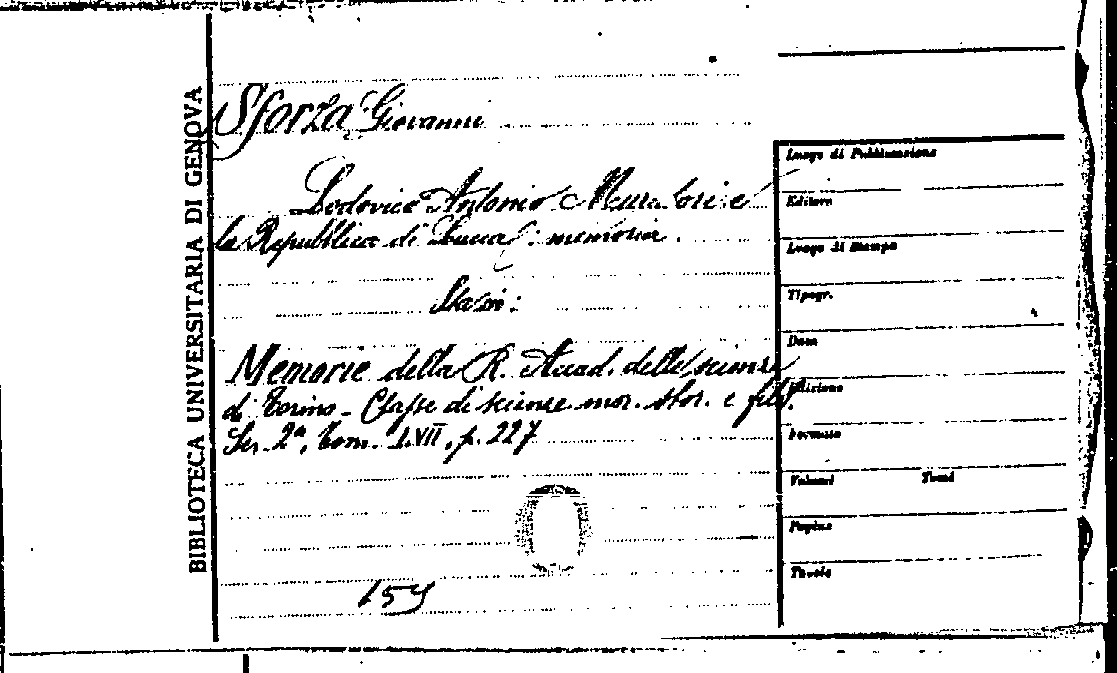 BIBLIOTECA UNIVERSITARIA DI GENOVA
Sforza Giovanni
Lodovico Antonio Muratori e
la Repubblica di Lucca: memoria.
Memorie della R. Accad. delle scienze
di Torino - Classe di scienze mor. stor. e filol.
Ser. 2ª, Tom. LVII, p. 227
Luogo di Pubblicazione
Editore
Luogo di Stampa
Tipogr.
Data
Edizione
Formato
Volumi Tomi
Pagine
Tavole